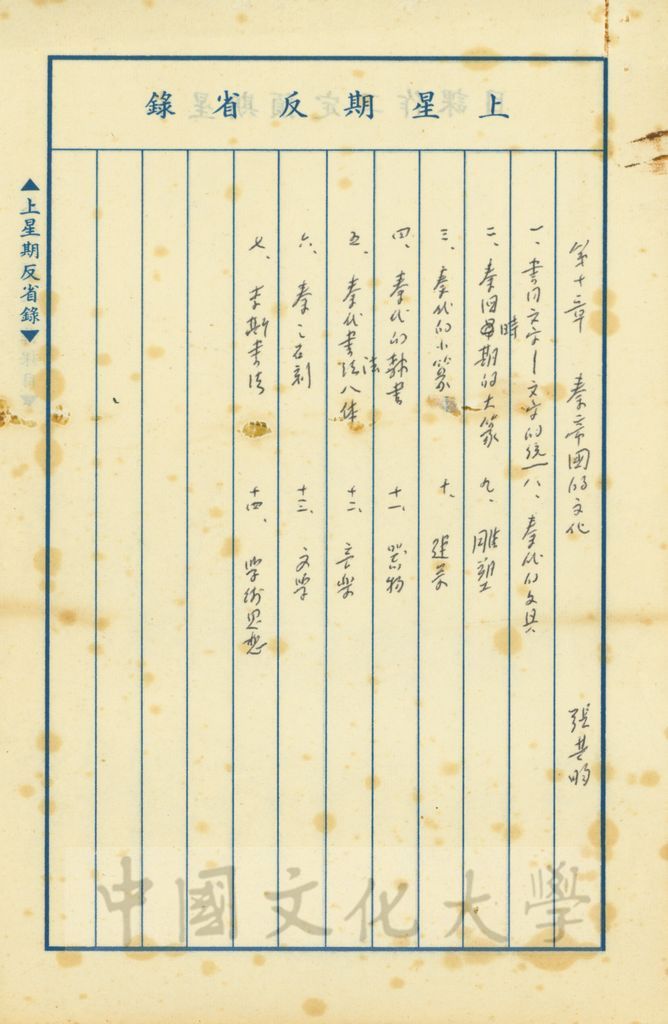 上星期反省錄
▲上星期反省錄▼
第十章 秦帝國的文化 張其昀
一、書同文字—文字的統一
二、秦國時期的大篆
三、秦代的小篆
四、秦代的隸書
五、秦代書法八体
六、秦之石刻
七、李斯書法
八、秦代的文具
九、雕塑
十、建築
十一、器物
十二、音樂
十三、文學
十四、學術思想
中國文化大學